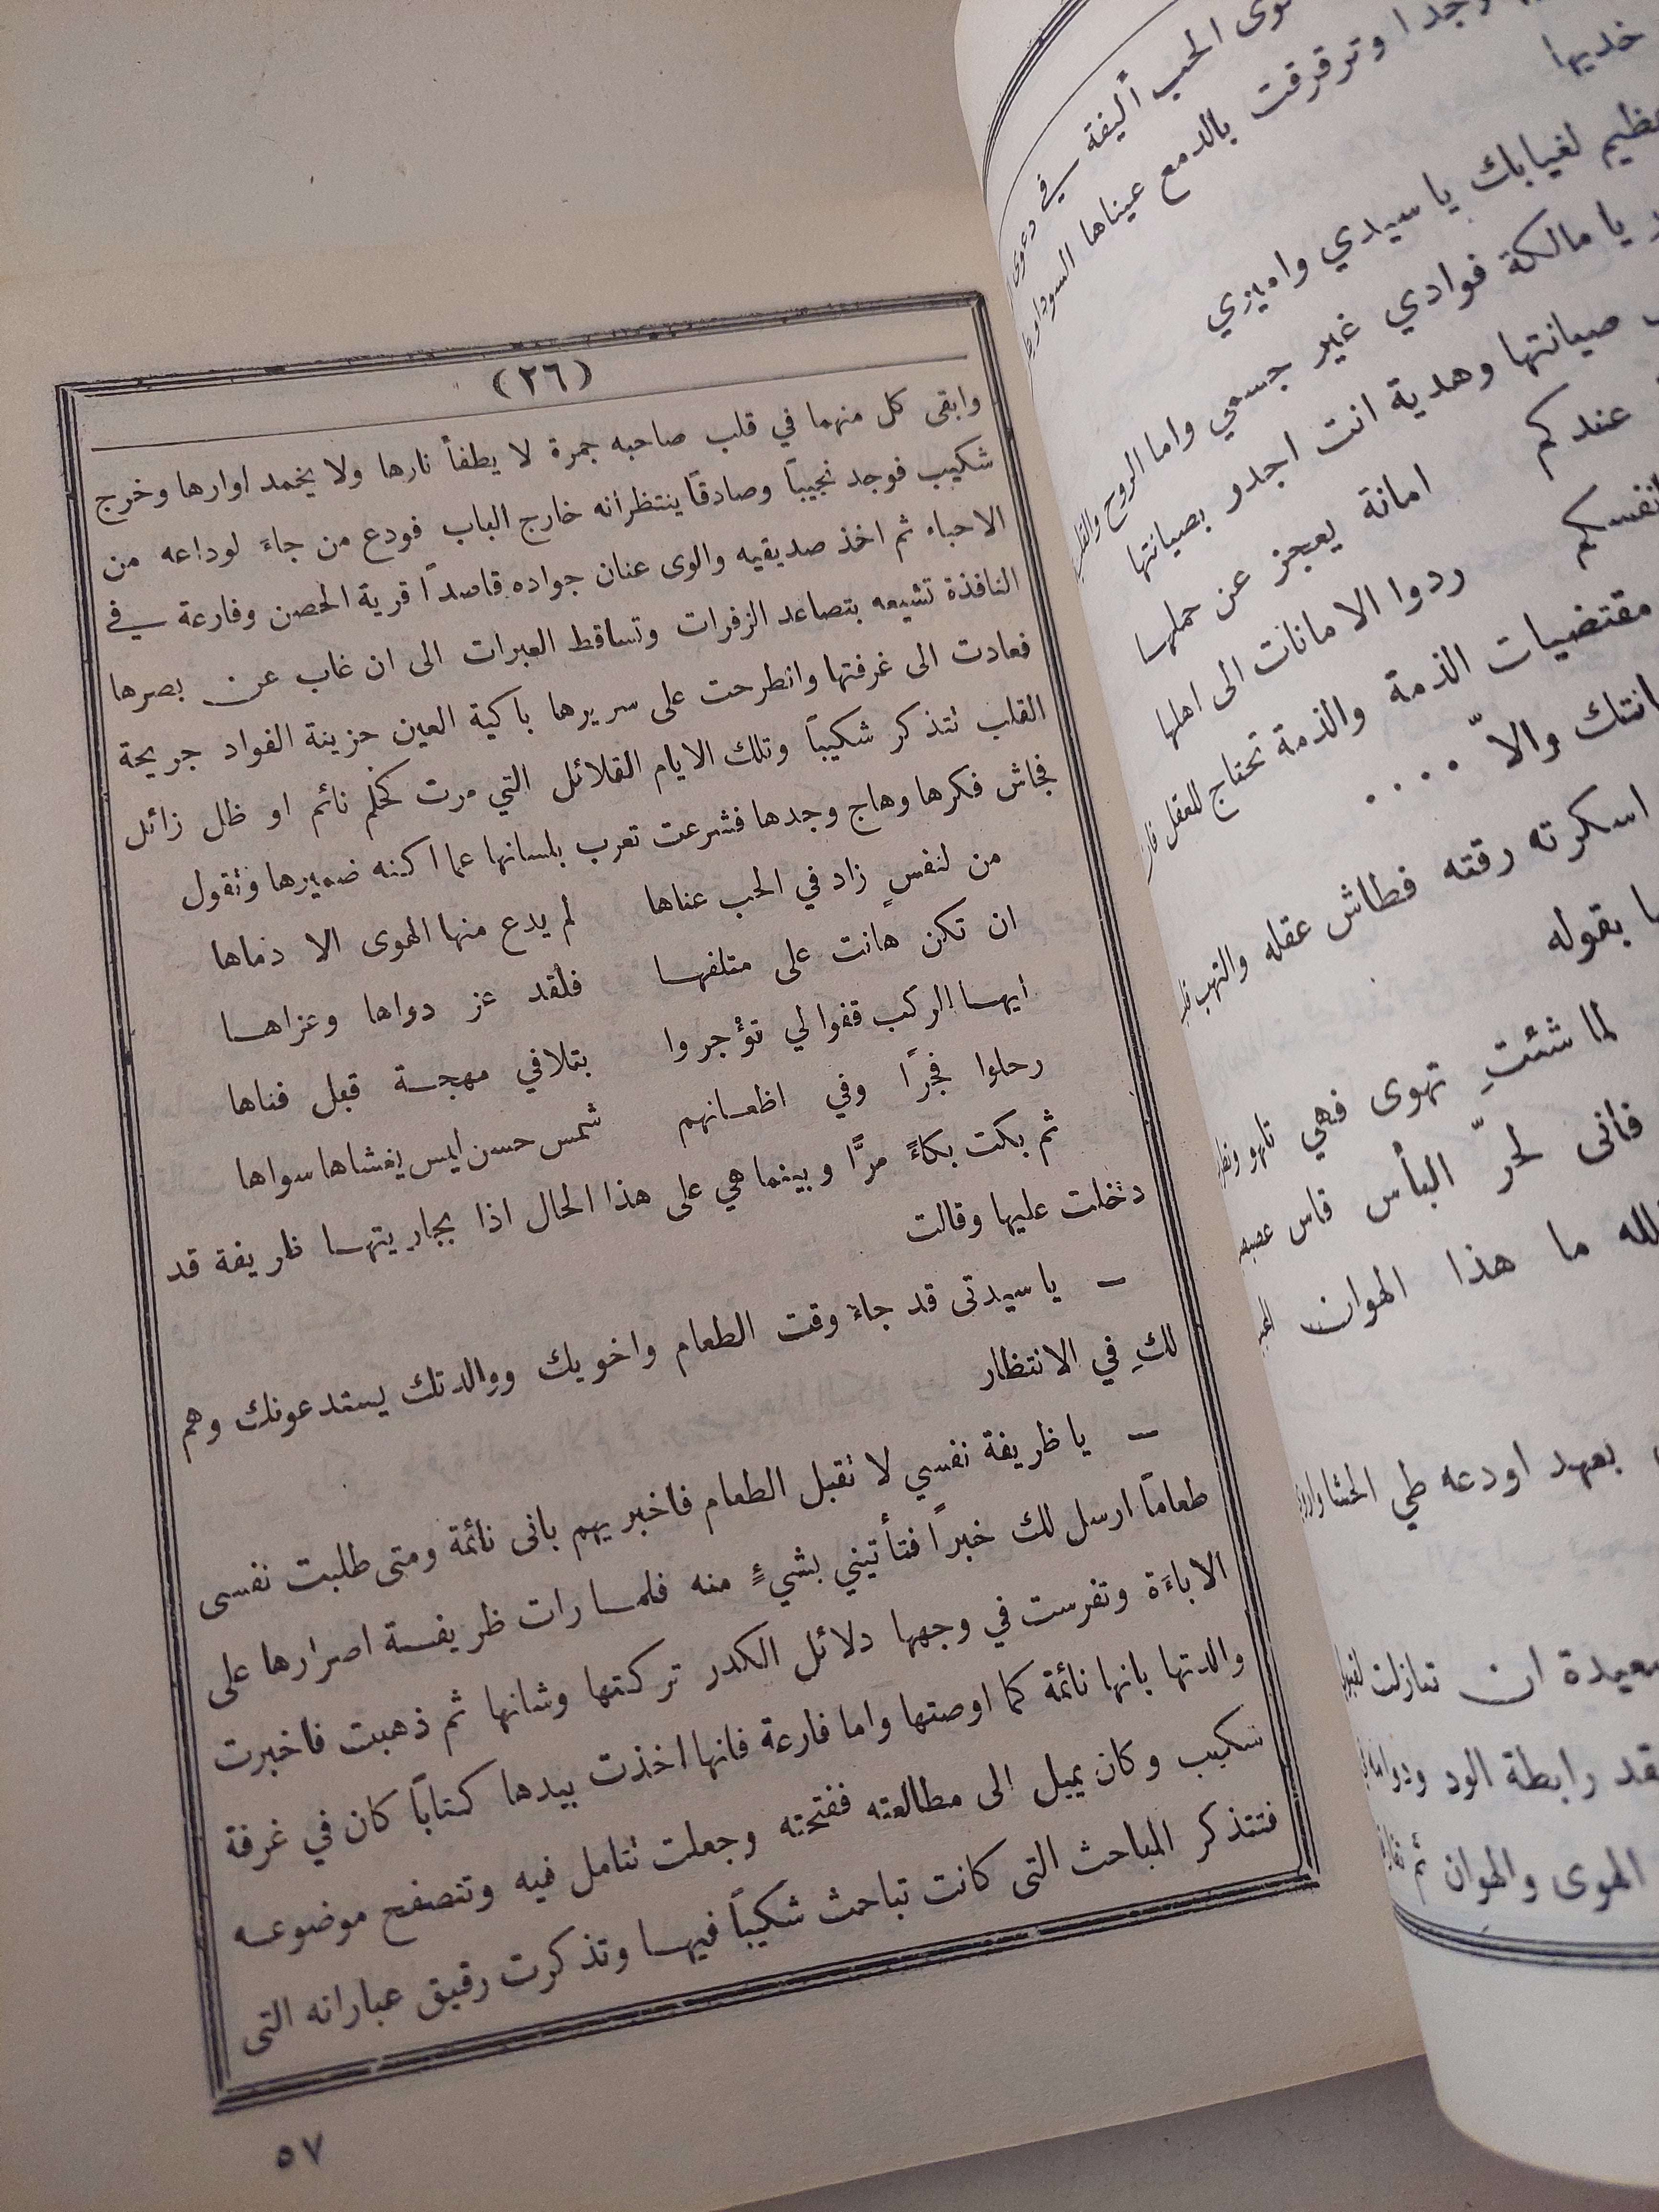 (٢٦)
وابقى كل منهما في قلب صاحبه جمرة لا يطفأ نارها ولا يخمد اوارها وخرج
شكيب فوجد نجيباً وصادقاً ينتظرانه خارج الباب فودع من جاءَ لوداعه من
الاحباء ثم اخذ صديقيه والوى عنان جواده قاصداً قرية الحصن وفارعة في
النافذة تشيعه بتصاعد الزفرات وتساقط العبرات الى ان غاب عن بصرها
فعادت الى غرفتها وانطرحت على سريرها باكية العين حزينة الفواد جريحة
القلب تتذكر شكيباً وتلك الايام القلائل التي مرت كحلم نائم او ظل زائل
فجاش فكرها وهاج وجدها فشرعت تعرب بلسانها عما اكنه ضميرها وتقول
من لنفسٍ زاد في الحب عناها لم يدع منها الهوى الا دماها
ان تكن هانت على متلفها فلقد عز دواها وعزاها
ايها الركب قفوا لي تؤجروا بتلافي مهجة قبل فناها
رحلوا فجرًا وفي اظعانهم شمس حسن ليس يغشاها سواها
ثم بكت بكاءً مرًّا وبينما هي على هذا الحال اذا بجاريتها ظريفة قد
دخلت عليها وقالت
– يا سيدتى قد جاءَ وقت الطعام واخويك ووالدتك يستدعونك وهم
لكِ في الانتظار
– يا ظريفة نفسي لا تقبل الطعام فاخبريهم بانى نائمة ومتى طلبت نفسى
طعاماً ارسل لك خبراً فتأتيني بشيءٍ منه فلما رات ظريفة اصرارها على
الاباءَة وتفرست في وجهها دلائل الكدر تركتها وشانها ثم ذهبت فاخبرت
والدتها بانها نائمة كما اوصتها واما فارعة فانها اخذت بيدها كتاباً كان في غرفة
شكيب وكان يميل الى مطالعته ففتحته وجعلت تتامل فيه وتتصفح موضوعه
فتتذكر المباحث التى كانت تباحث شكيباً فيها وتذكرت رقيق عباراته التى
٥٧
الحب أليفة في دعوى
وترقرقت بالدمع عيناها
خديها
لغيابك يا سيدي واميري
يا مالكة فوادي غير جسمي واما الروح
صيانتها وهدية انت اجدر بصيانتها
عندكم امانة يعجز عن حملها
ردوا الامانات الى اهلها
مقتضيات الذمة والذمة تحتاج للعقل
والاّ ....
اسكرته رقته فطاش عقله والتهب
بقوله
لما شئتِ تهوى فهي
فانى لحرّ البأس قاس
ما هذا الهوان
بعهد اودعه طي الحشا
ان تنازلت
رابطة الود
الهوى والهوان ثم